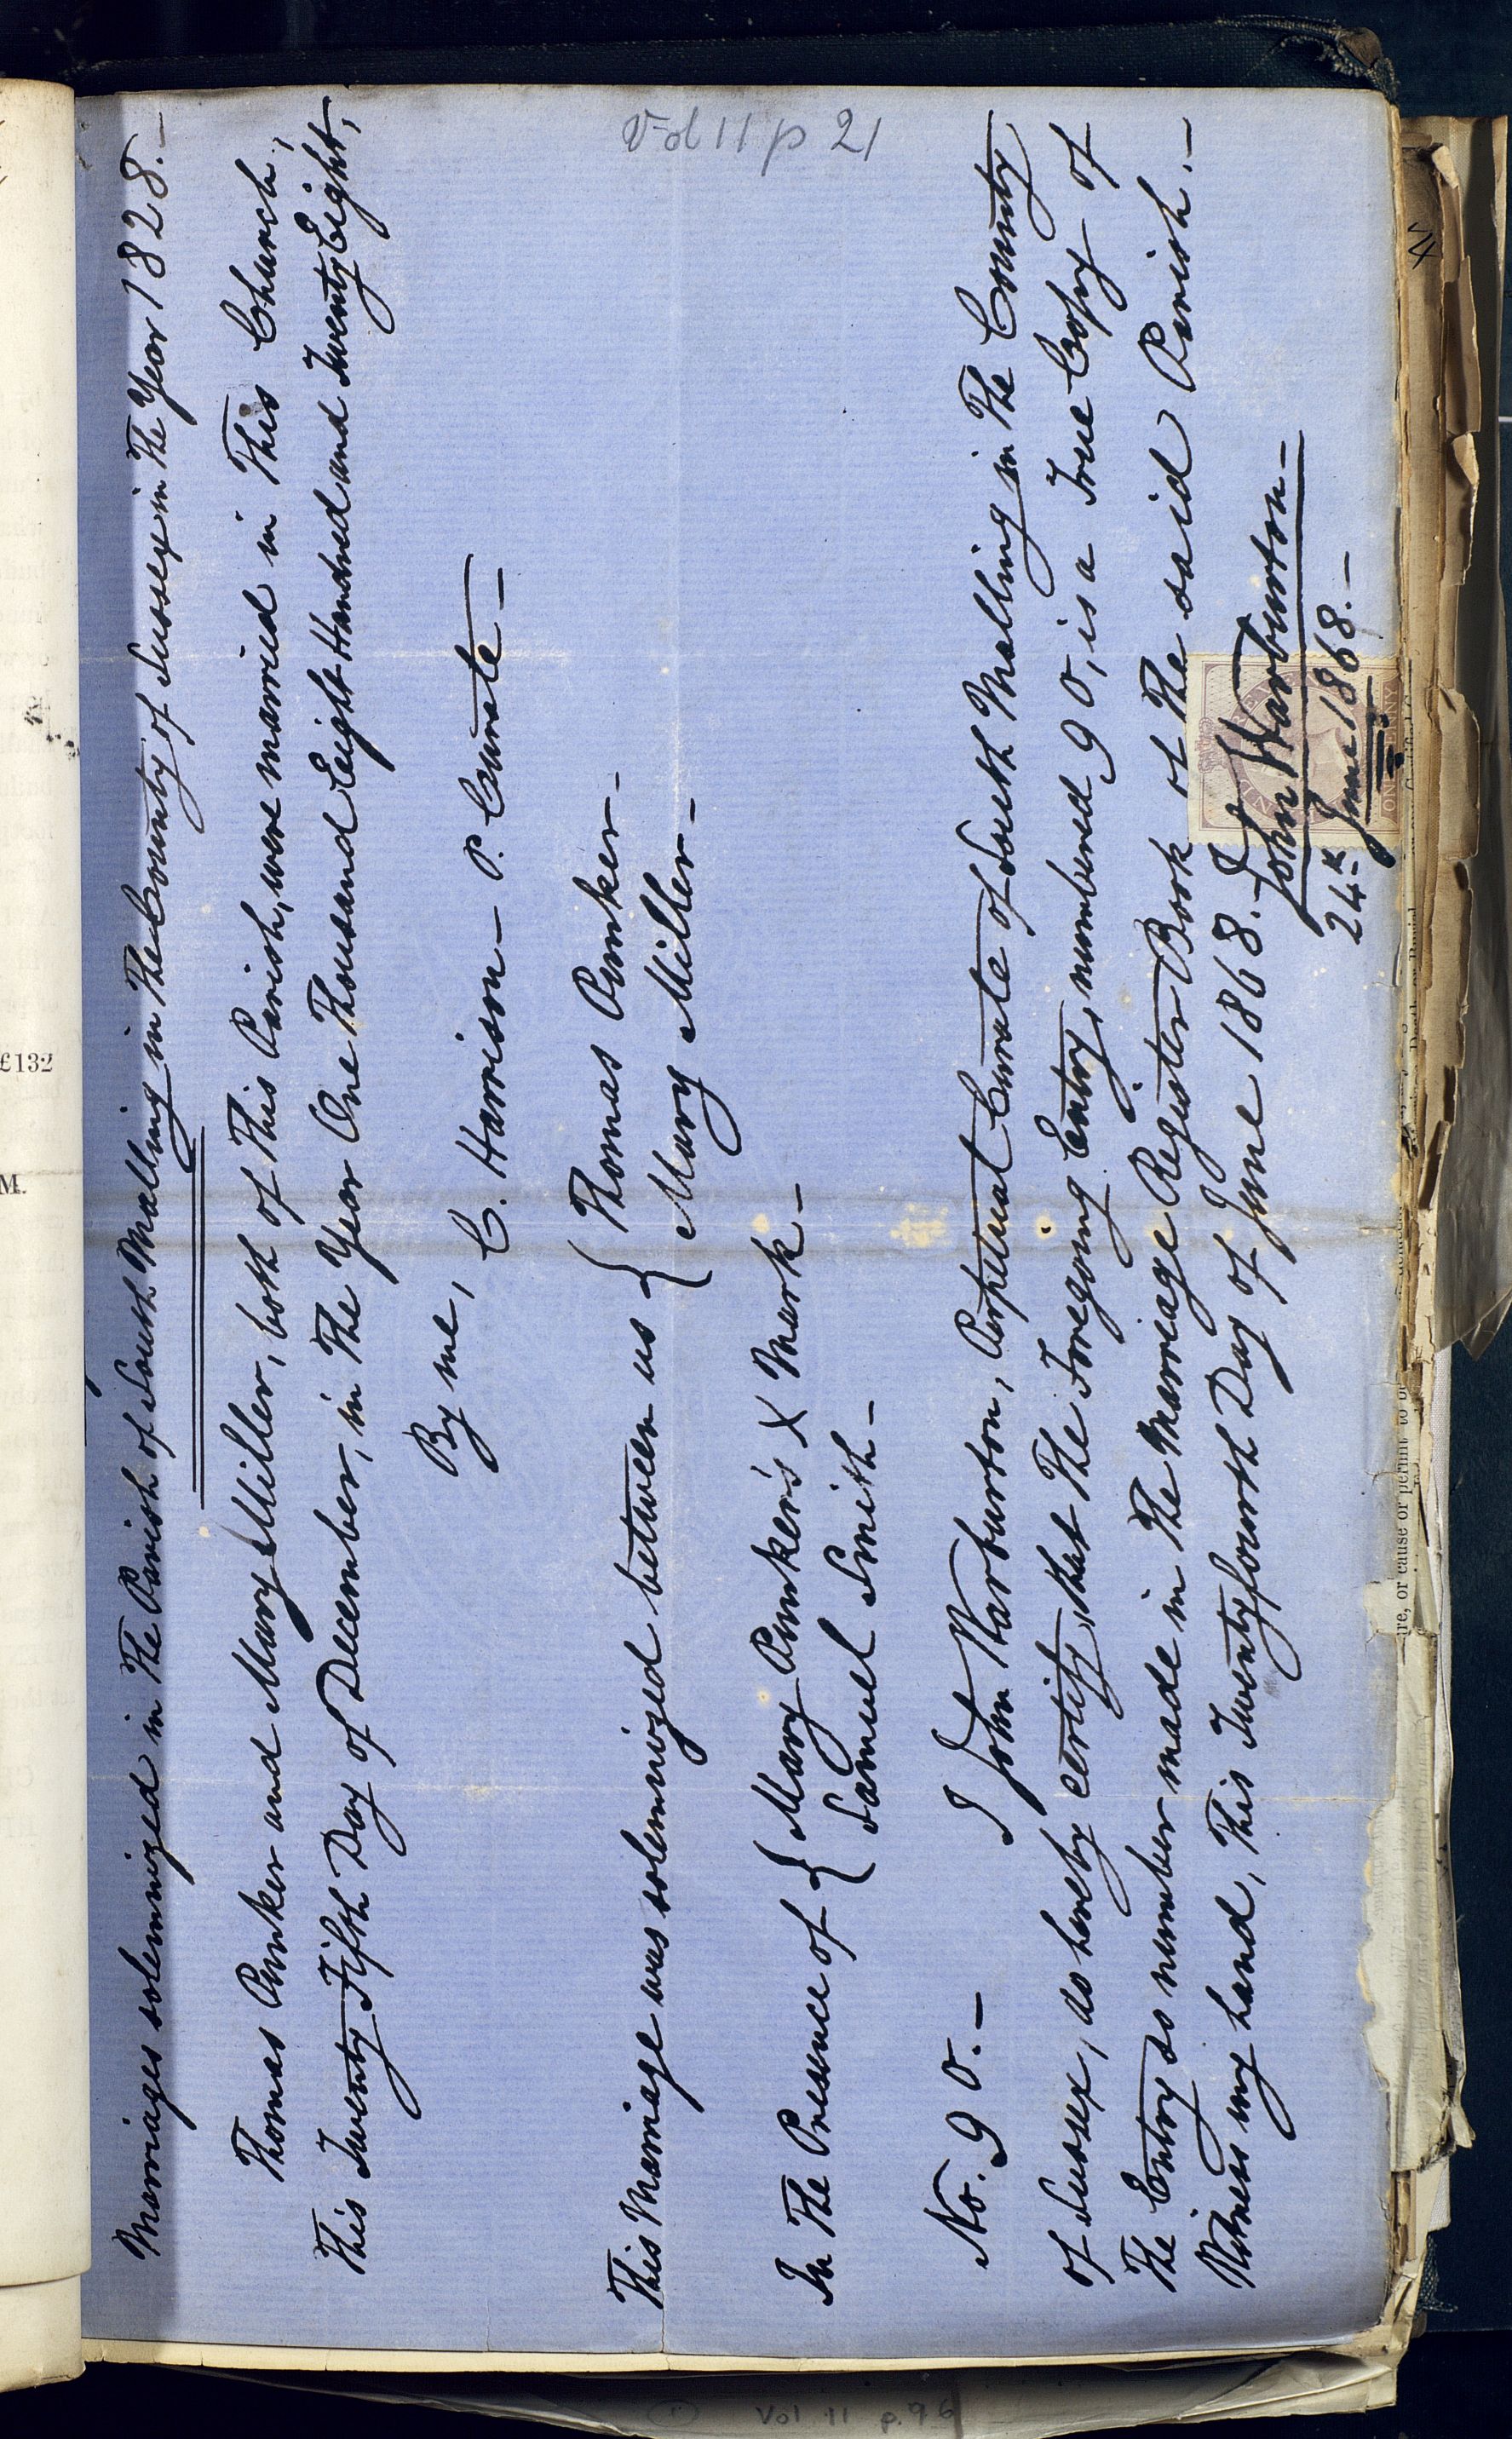 Marriages solemnized in The Parish of South Malling in The County of Sussex in The Year 1828.—
Thomas Punker and Mary Miller, both of This Parish, were married in This Church,
This Twenty Fifth Day of December, in The Year One Thousand Eight Hundred and Twenty Eight,
By me,
C. Harrison — P. Curate —
This Marriage was solemnized between us { Thomas Punker —
Mary Miller —
In The Presence of { Mary Punker's X Mark —
Samuel Smith —
No. 90. —
I John Warburton, Perpetual Curate of South Malling in The County
of Sussex, do hereby certify, that The Foregoing Entry, numbered 90, is a True Copy of
The Entry so number made in The Marriage Register Book of The said Parish.—
Witness my hand, This Twentyfourth Day of June 1868.—
John Warburton —
24th June 1868.—
Vol 11 p 21
£132
M.
ONE PENNY
re, or cause or permit to be
Vol 11 p. 96